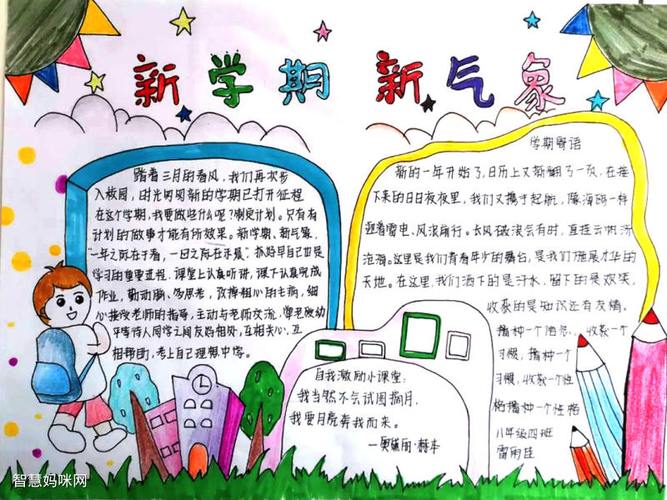 新学期 新气象
踏着三月的春风，我们再次步
入校园，时光匆匆新的学期已打开征程
在这个学期，我要做些什么呢？制定计划。只有有
计划的做事才能有所效果。新学期、新气象，
一年之际在于春，一日之际在于晨
学习的重要过程，课堂上认真听讲，课下认真完成
作业，勤动脑、多思考，改掉粗心的毛病，细
心接受老师的指导，主动与老师交流
平等待人同学之间友好相处，在相关心、互
相帮助，考上自己理想中学。
学期寄语
新的一年开始了，日历上又新翻了一页，在接
下来的日日夜夜里，我们又携手起航，像海鸥一样
迎着雷电、风浪前行。长风破浪会有时，直挂云帆济
沧海。这里是我们青春年少的舞台，是我们施展才华的
天地。在这里，我们洒下的是汗水，留下的是欢笑，
收获的是知识还有友情。
播种一个 收获一个
习惯，播种一个
习惯，收获一个性
格播种一个性格
八年级四班
自我激励小课堂：
我当然不会试图摘月，
我要月亮奔我而来。
—奥黛丽·赫本
智慧妈咪网